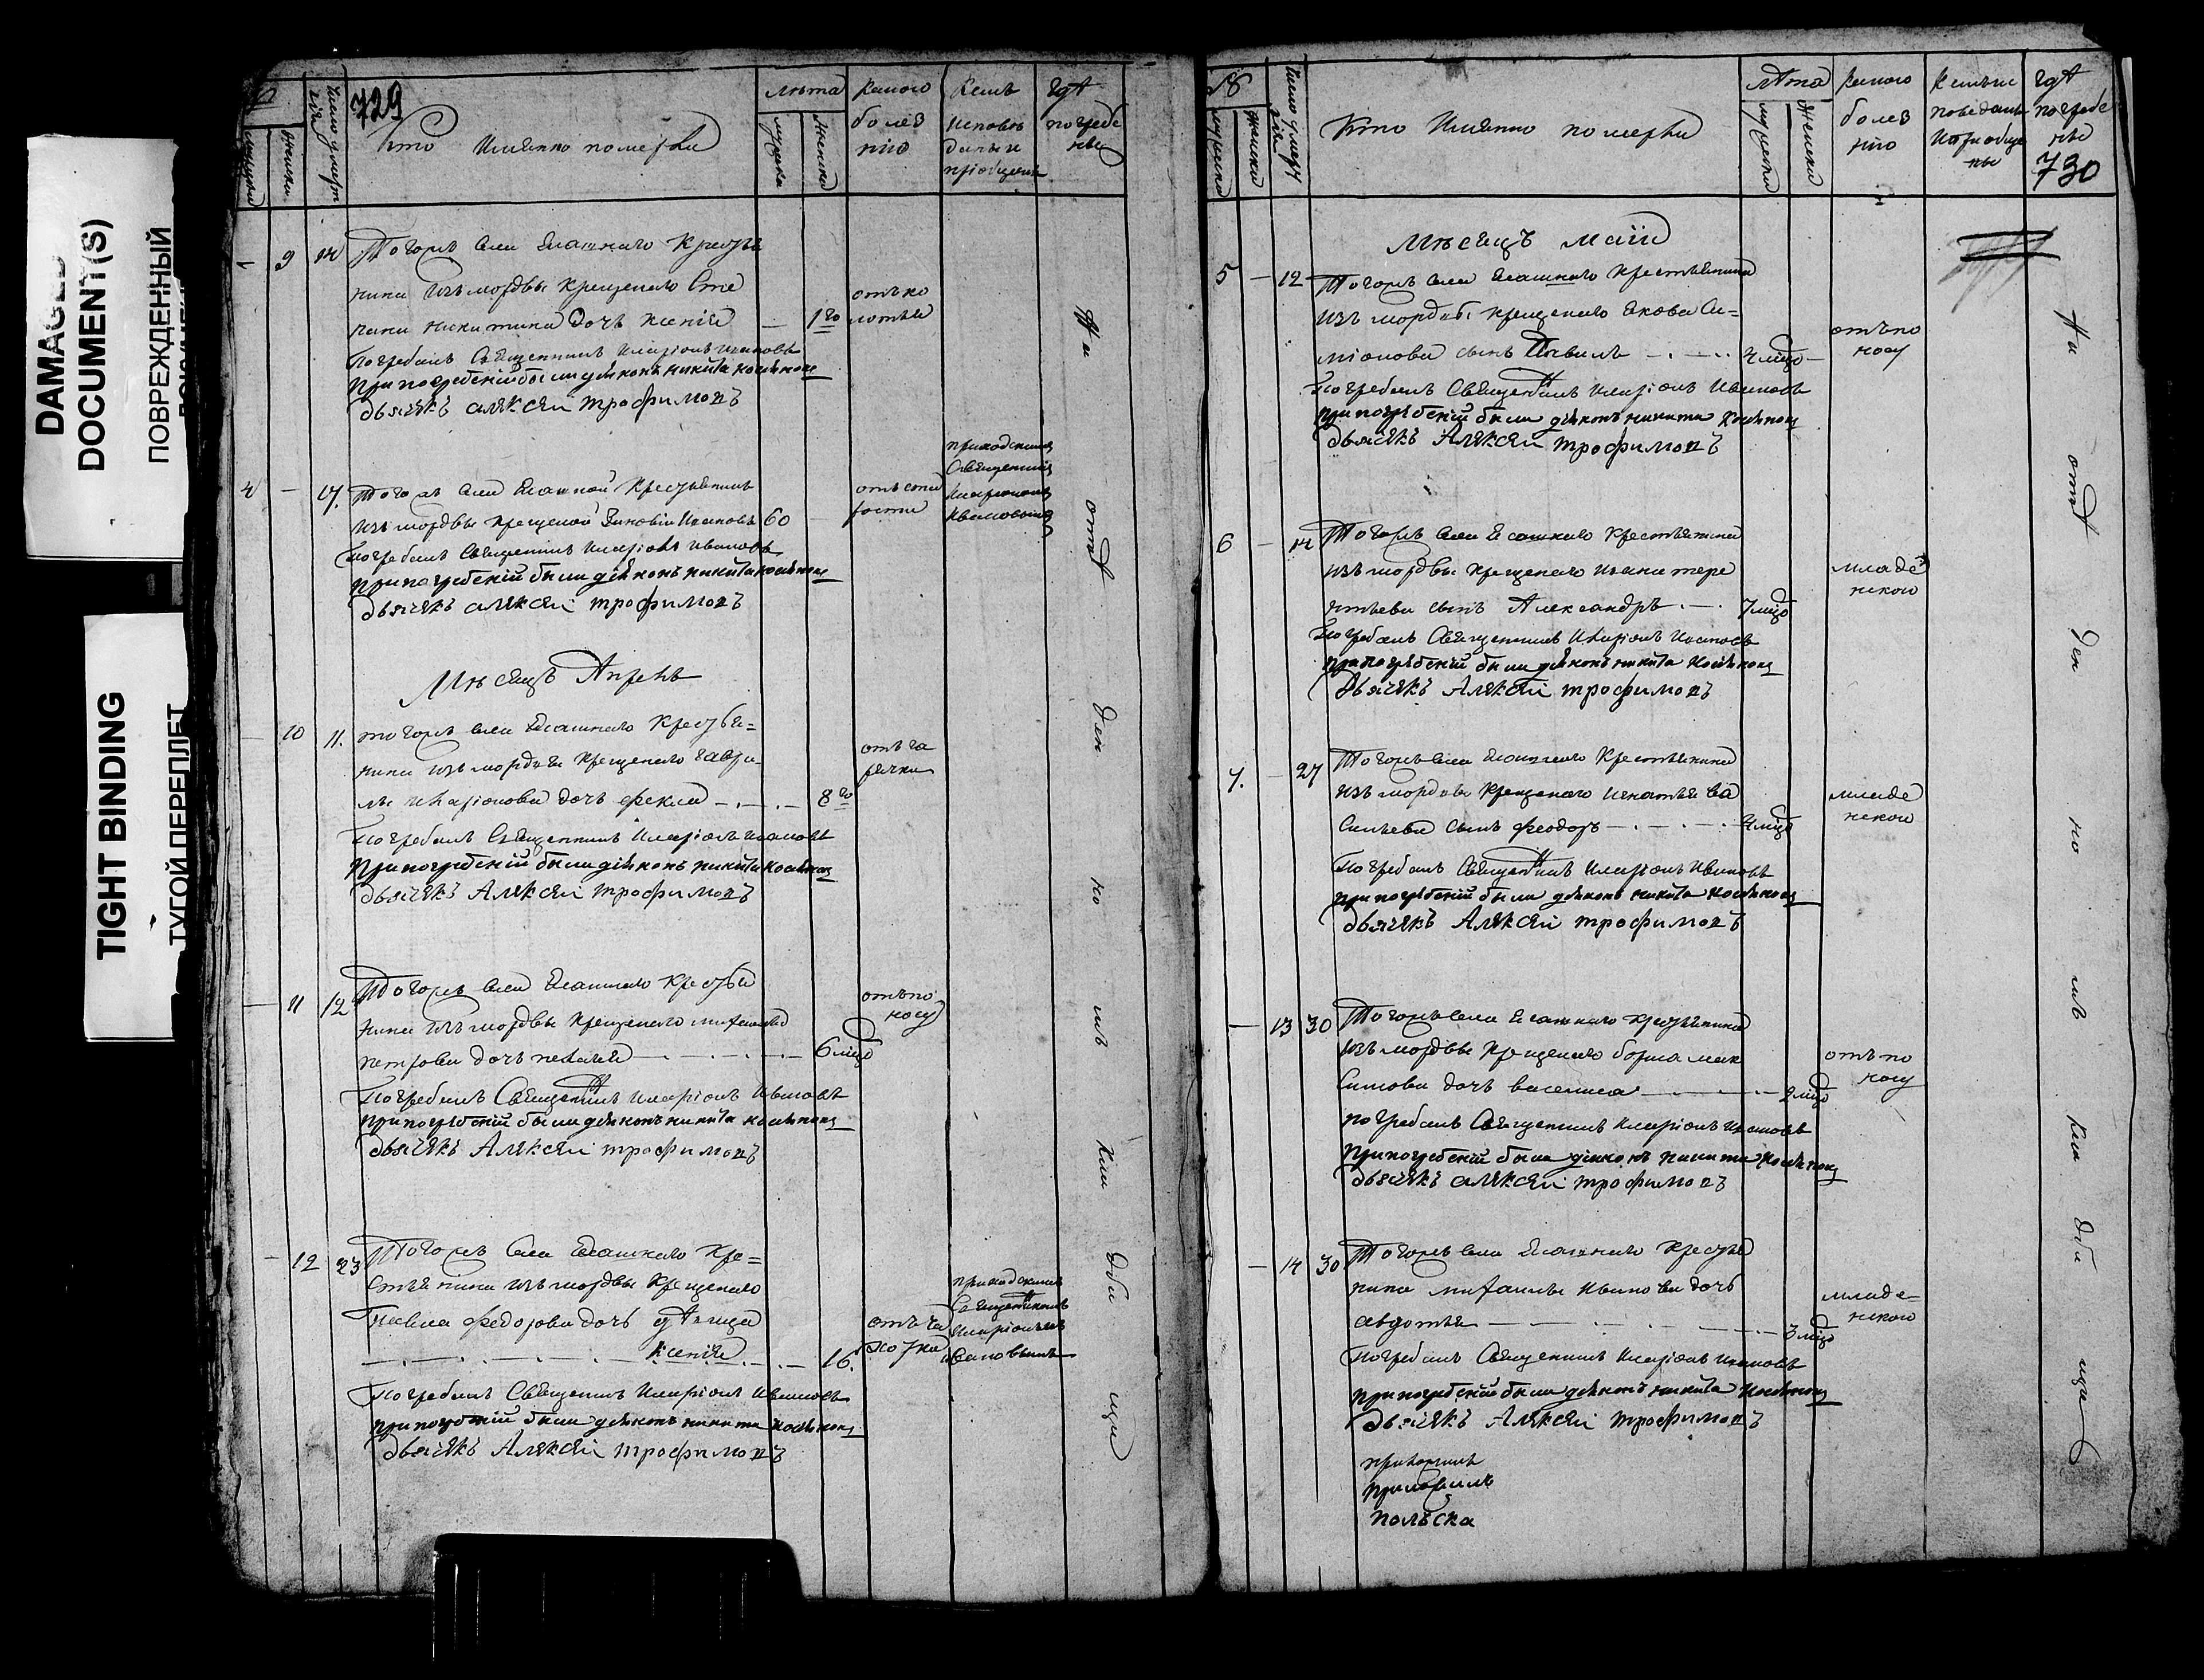 DAMAGED
DOCUMENT(S)
ПОВРЕЖДЕННЫЙ
TIGHT BINDING
ТУГОЙ ПЕРЕПЛЕТ
729
Кто Имянно померли
лѣта
мужска
женска
какого
болез
нию
Кемъ
исповѣ
даны и
пріобщены
гдѣ
погребе
ны
9 14 Тогожъ села Елашнаго Крестья
нина изъ мордвы крещенаго Сте
пана никитина дочь ксения — 1го
отъ ко
лотья
Погребалъ Священникъ Иларіонъ Ивановъ
При погребеніи были діяконъ никита косминъ
дьячекъ алексей трофимовъ
4 — 17. Тогожъ села Елашной Крестьянинъ
изъ мордвы крещеной Зиновiй Ивановъ 60
отъ ста
рости
приходскимъ
Священникомъ
Иларионом
Ивановымъ
Погребалъ Священникъ Иларіонъ Ивановъ
При погребеніи были діяконъ никита косминъ
дьячекъ алексей трофимовъ
Мѣсяцъ Апрель
— 10 11. тогожъ села Елашнаго Крестья=
нина изъ мордвы крещенаго гаври
лы Иларіонова дочь фекла — 8го
отъ га
рячки
Погребалъ Священникъ Иларіонъ Ивановъ
При погребеніи были діяконъ никита косминъ
дьячекъ Алексей трофимовъ
— 11 12 Тогожъ села Елашнаго Крестья
нина изъ мордвы крещенаго михаила
петрова дочь пелагея — 6 мцо
отъ по
носу
Погребалъ Священникъ Иларіонъ Ивановъ
При погребеніи были діяконъ никита косминъ
дьячекъ Алексей трофимовъ
— 12 23 Тогожъ села Елашнаго Кре=
стьянина изъ мордвы крещенаго
Павла федорова дочь дѣвица
ксения — 16.
отъ ча
хотки
приходскимъ
Священникомъ
Иларіономъ
Ивановымъ
Погребалъ Священникъ Иларіонъ Ивановъ
При погребеніи были діяконъ никита косминъ
дьячекъ Алексей трофимовъ
На отъ ден но мъ кла дби щи
Число умерш
Кто Имянно померли
лѣта
мужска
женска
какого
болез
нию
Кемъ ис
поведаны
и приобще
ны
гдѣ
погребе
ны
730
Мѣсяцъ маiи
5 — 12 Тогожъ села Елашнаго крестьянина
изъ мордвы крещенаго Якова Си=
міонова сынъ Павелъ — 4 мцо
отъ по
носу
Погребалъ Священникъ Иларіонъ Ивановъ
при погребеніи были діяконъ никита косминъ
дьячекъ Алексей трофимовъ
6 — 14 Тогожъ села Елашнаго крестьянина
изъ мордвы крещенаго ивана тере
нтьева сынъ Александръ — 7 мцо
младе
нскою
Погребалъ Священникъ Иларіонъ Ивановъ
при погребеніи были діяконъ никита косминъ
дьячекъ Алексей трофимовъ
7. — 27 Тогожъ села Елашнаго Крестьянина
изъ мордвы крещенаго игнатья ва
сильева сынъ феодоръ — 4 мцо
младе
нскою
Погребалъ Священникъ Иларіонъ Ивановъ
при погребеніи были діяконъ никита косминъ
дьячекъ Алексей трофимовъ
— 13 30 Тогожъ села Елашнаго крестьянина
изъ мордвы крещенаго бориса мак
симова дочь василиса — 2 мцо
отъ по
носу
погребалъ Священникъ Иларіонъ Ивановъ
при погребеніи были діяконъ никита косминъ
дьячекъ алексей трофимовъ
— 14 30 Тогожъ села Елашнаго крестья
нина михаилы Иванова дочь
авдотья — 3 мцо
младе
нскою
Погребалъ Священникъ Иларіонъ Ивановъ
при погребеніи были діяконъ никита косминъ
дьячекъ Алексей трофимовъ
На отъ ден но мъ кла дби ща